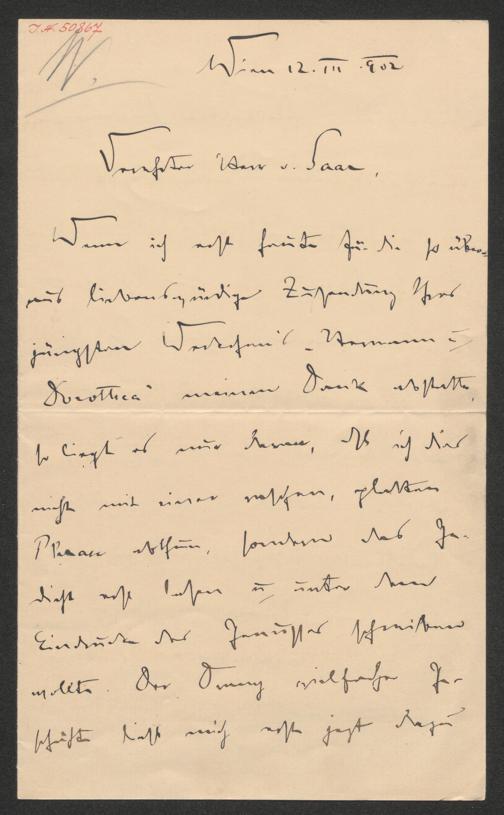 I.N. 50867
W.
Wien 12. III. 902
Verehrter Herr v. Saar,
Wenn ich erst heute für die so über-
aus liebenswürdige Zusendung Ihres
jüngsten Werkchens „Hermann u
Dorothea" meinen Dank abstatte,
so liegt es nur daran, daß ich dies
nicht mit einer raschen, glatten
Phrase abthun, sondern das Ge-
dicht erst lesen u. unter dem
Eindrucke des Genusses schreiben
wollte. Der Drang vielfacher Ge-
schäfte ließ mich erst jetzt dazu